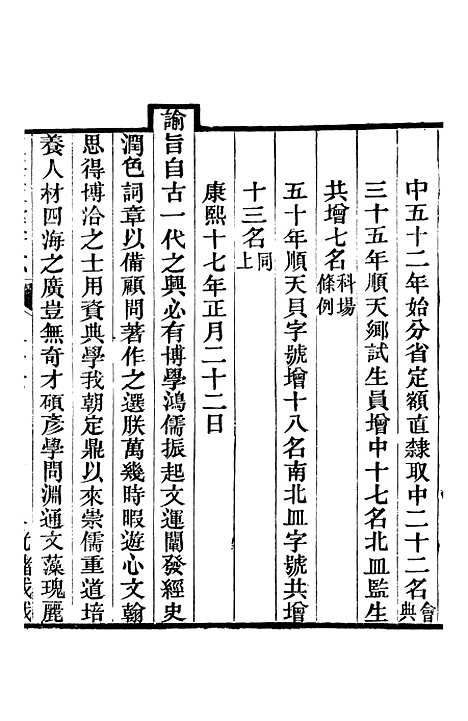 中五十二年始分省定額直隸取中二十二名會典
三十五年順天鄉試生員增中十七名北皿監生
共增七名科場條例
五十年順天貝字號增十八名南北皿字號共增
十三名同上
康熙十七年正月二十二日
諭旨自古一代之興必有博學鴻儒振起文運闡發經史
潤色詞章以備顧問著作之選朕萬幾時暇遊心文翰
思得博洽之士用資典學我朝定鼎以來崇儒重道培
養人材四海之廣豈無奇才碩彥學問淵通文藻瑰麗